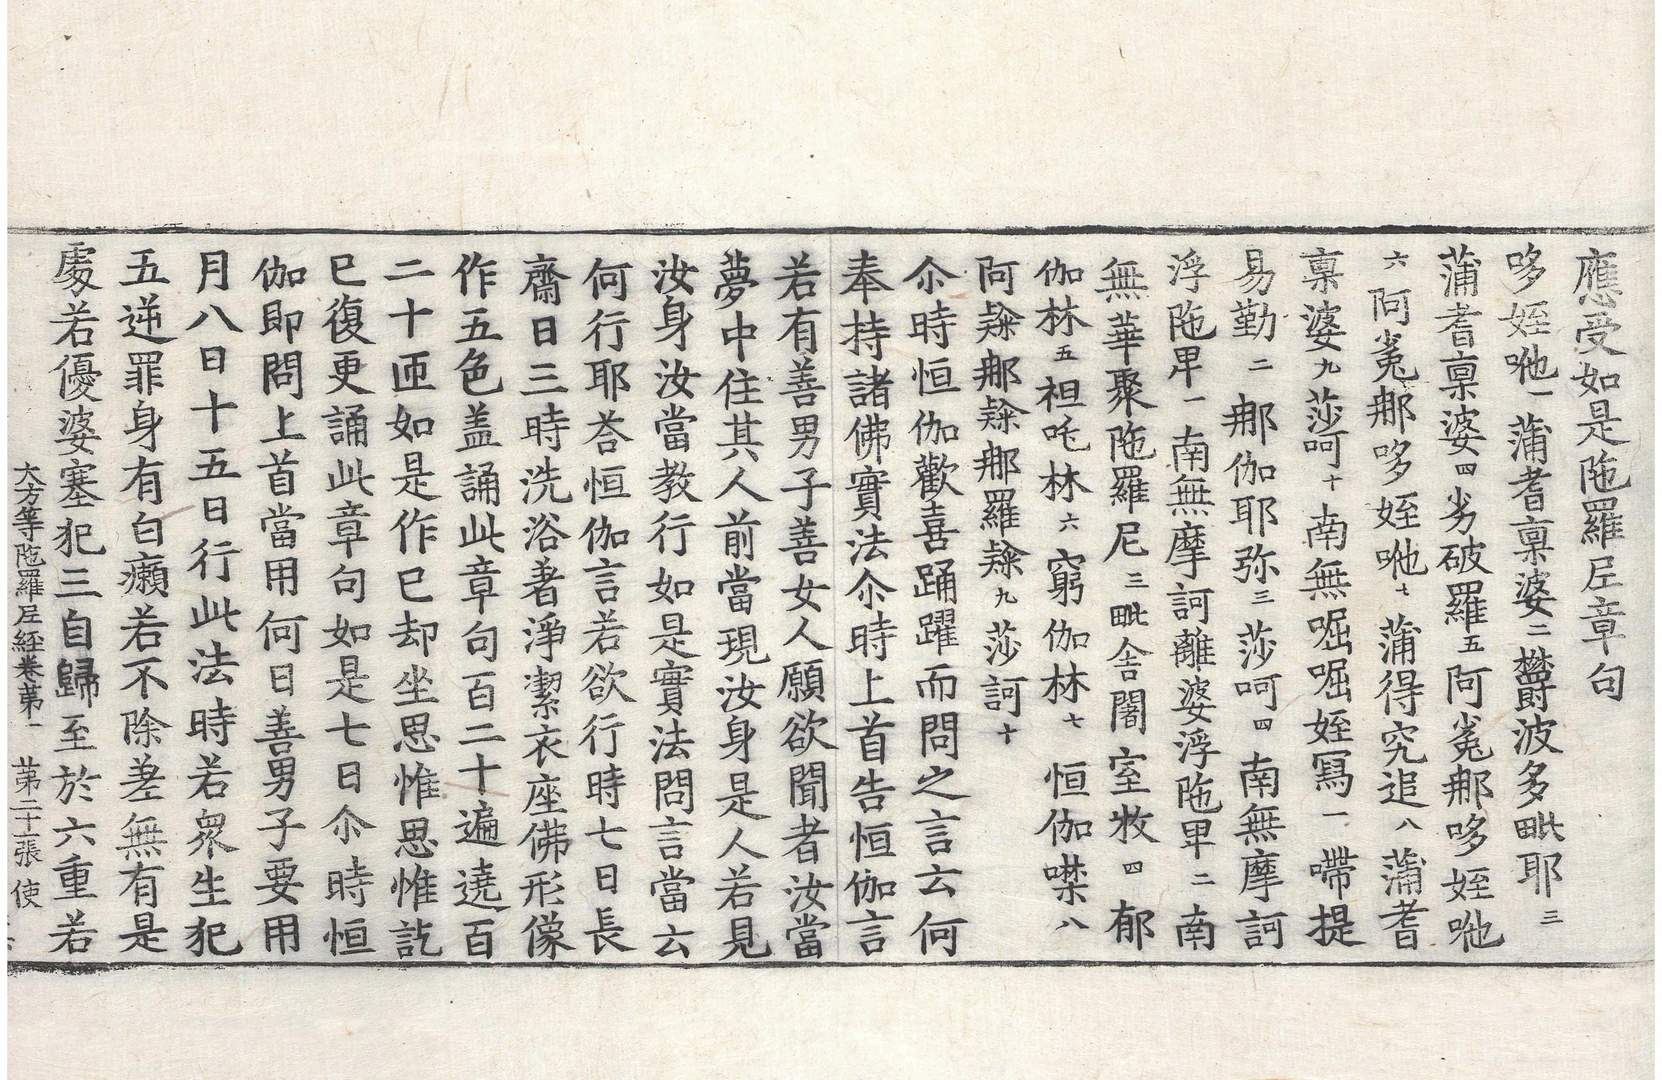 應受如是陁羅尼章句
哆姪咃一蒲耆稟婆二欝波多毗耶三
蒲耆稟婆四劣破羅五阿㝹那哆姪咃
六阿㝹那哆姪咃七蒲得究追八蒲耆
稟婆九莎呵十南無堀堀姪寫一嗁提
易勤二那伽耶弥三莎呵四南無摩訶
浮陁畀一南無摩訶離婆浮陁畀二南
無華聚陁羅尼三毗舍闍室牧四郁
伽林五袒咤林六窮伽林七恒伽噤八
阿䅉那䅉那羅䅉九莎訶十
尒時恒伽歡喜踊躍而問之言云何
奉持諸佛實法尒時上首告恒伽言
若有善男子善女人願欲聞者汝當
夢中住其人前當現汝身是人若見
汝身汝當教行如是實法問言當云
何行耶荅恒伽言若欲行時七日長
齋日三時洗浴著淨潔衣座佛形像
作五色盖誦此章句百二十遍遶百
二十匝如是作已却坐思惟思惟訖
已復更誦此章句如是七日尒時恒
伽即問上首當用何日善男子要用
月八日十五日行此法時若衆生犯
五逆罪身有白癩若不除差無有是
處若優婆塞犯三自歸至於六重若
大方等陁羅尼經卷苐一　苐二十張　使